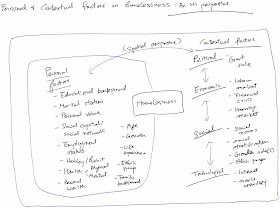 Personal & Contextual factors on Homelessness: An HI perspective
(Spatial perspective)
Contextual factors
Personal factors
- Educational background
- Mental
- Personal Value
- Social capital/
social network
- Employment
status
- Health - Physical
- Mental
wealth
- Age
- Gender
- Life experience
- Ethnic group
- Family background
Homelessness
Political
- Govt
rule
Economic
- Labour
market
- Financial
crisis
- Housing
market
Social
- Social
norms
- Social
stratification
- Gender role(s)
- Ethnic group
Technological
- Internet